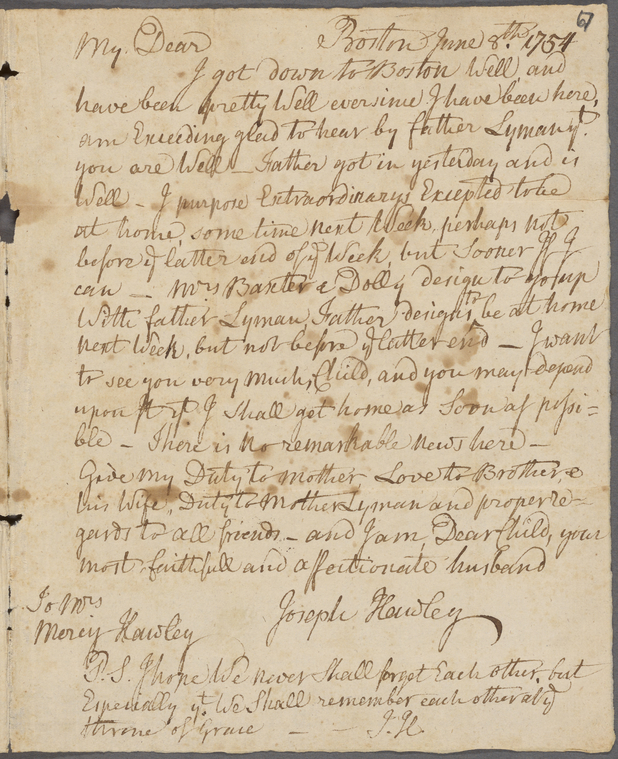 67
My Dear Boston June 8.th 1754
I got down to Boston Well, and
have been pretty Well ever since I have been here,
am Exceeding glad to hear by father Lyman yt
you are Well — Father got in yesterday and is
Well — I purpose Extraordinarys Excepted to be
at home, some time next Week, perhaps not
before ye latter end of ye Week, but Sooner If I
can — Mrs Baxter & Dolly design to go up
With father Lyman, Father designs to be at home
next Week, but not before ye latter end — I want
to see you very much, Child, and you may depend
upon It yt I shall get home as Soon as possi=
ble — There is no remarkable news here —
Give my Duty to Mother Love to Brother, &
his Wife, Duty to Mother Lyman and proper re=
gards to all friends — and I am, Dear Child, your
most faithfull and affectionate husband
Joseph Hawley
To Mrs
Mercy Hawley
P.S. I hope We never Shall forget Each other, but
Especially yt We Shall remember each other at ye
throne of Grace — — J.H